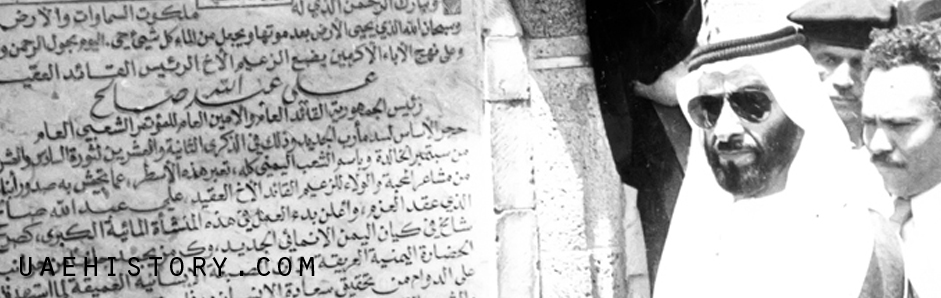 وتبارك الرحمن الذي له ملكوت السماوات والأرض
وسبحان الله الذي يحيي الأرض بعد موتها ويجعل من الماء كل شيء حي. اليوم بحول الرحمن و
وعلى نهج الآباء الأكرمين يضع الزعيم الأخ الرئيس القائد العقيد
علي عبد الله صالح
رئيس الجمهورية القائد العام والأمين العام للمؤتمر الشعبي العام
حجر الأساس لسد مأرب الجديد وذلك في الذكرى الثانية والعشرين لثورة السادس والعشر
من سبتمبر الخالدة وباسم الشعب اليمني كله، تعبر هذه الأسطر، عما تجيش به صدور أبنا
من مشاعر المحبة والولاء للزعيم القائد الأخ العقيد علي عبد الله صالح
الذي عقد العزم، وأعلن بدء العمل في هذه المنشأة المائية الكبرى، كصرح
شامخ في كيان اليمن الإنمائي الجديد،
الحضارة اليمنية العريقة
على الدوام من تحقيق سعادة الإنسان
UAEHISTORY.COM